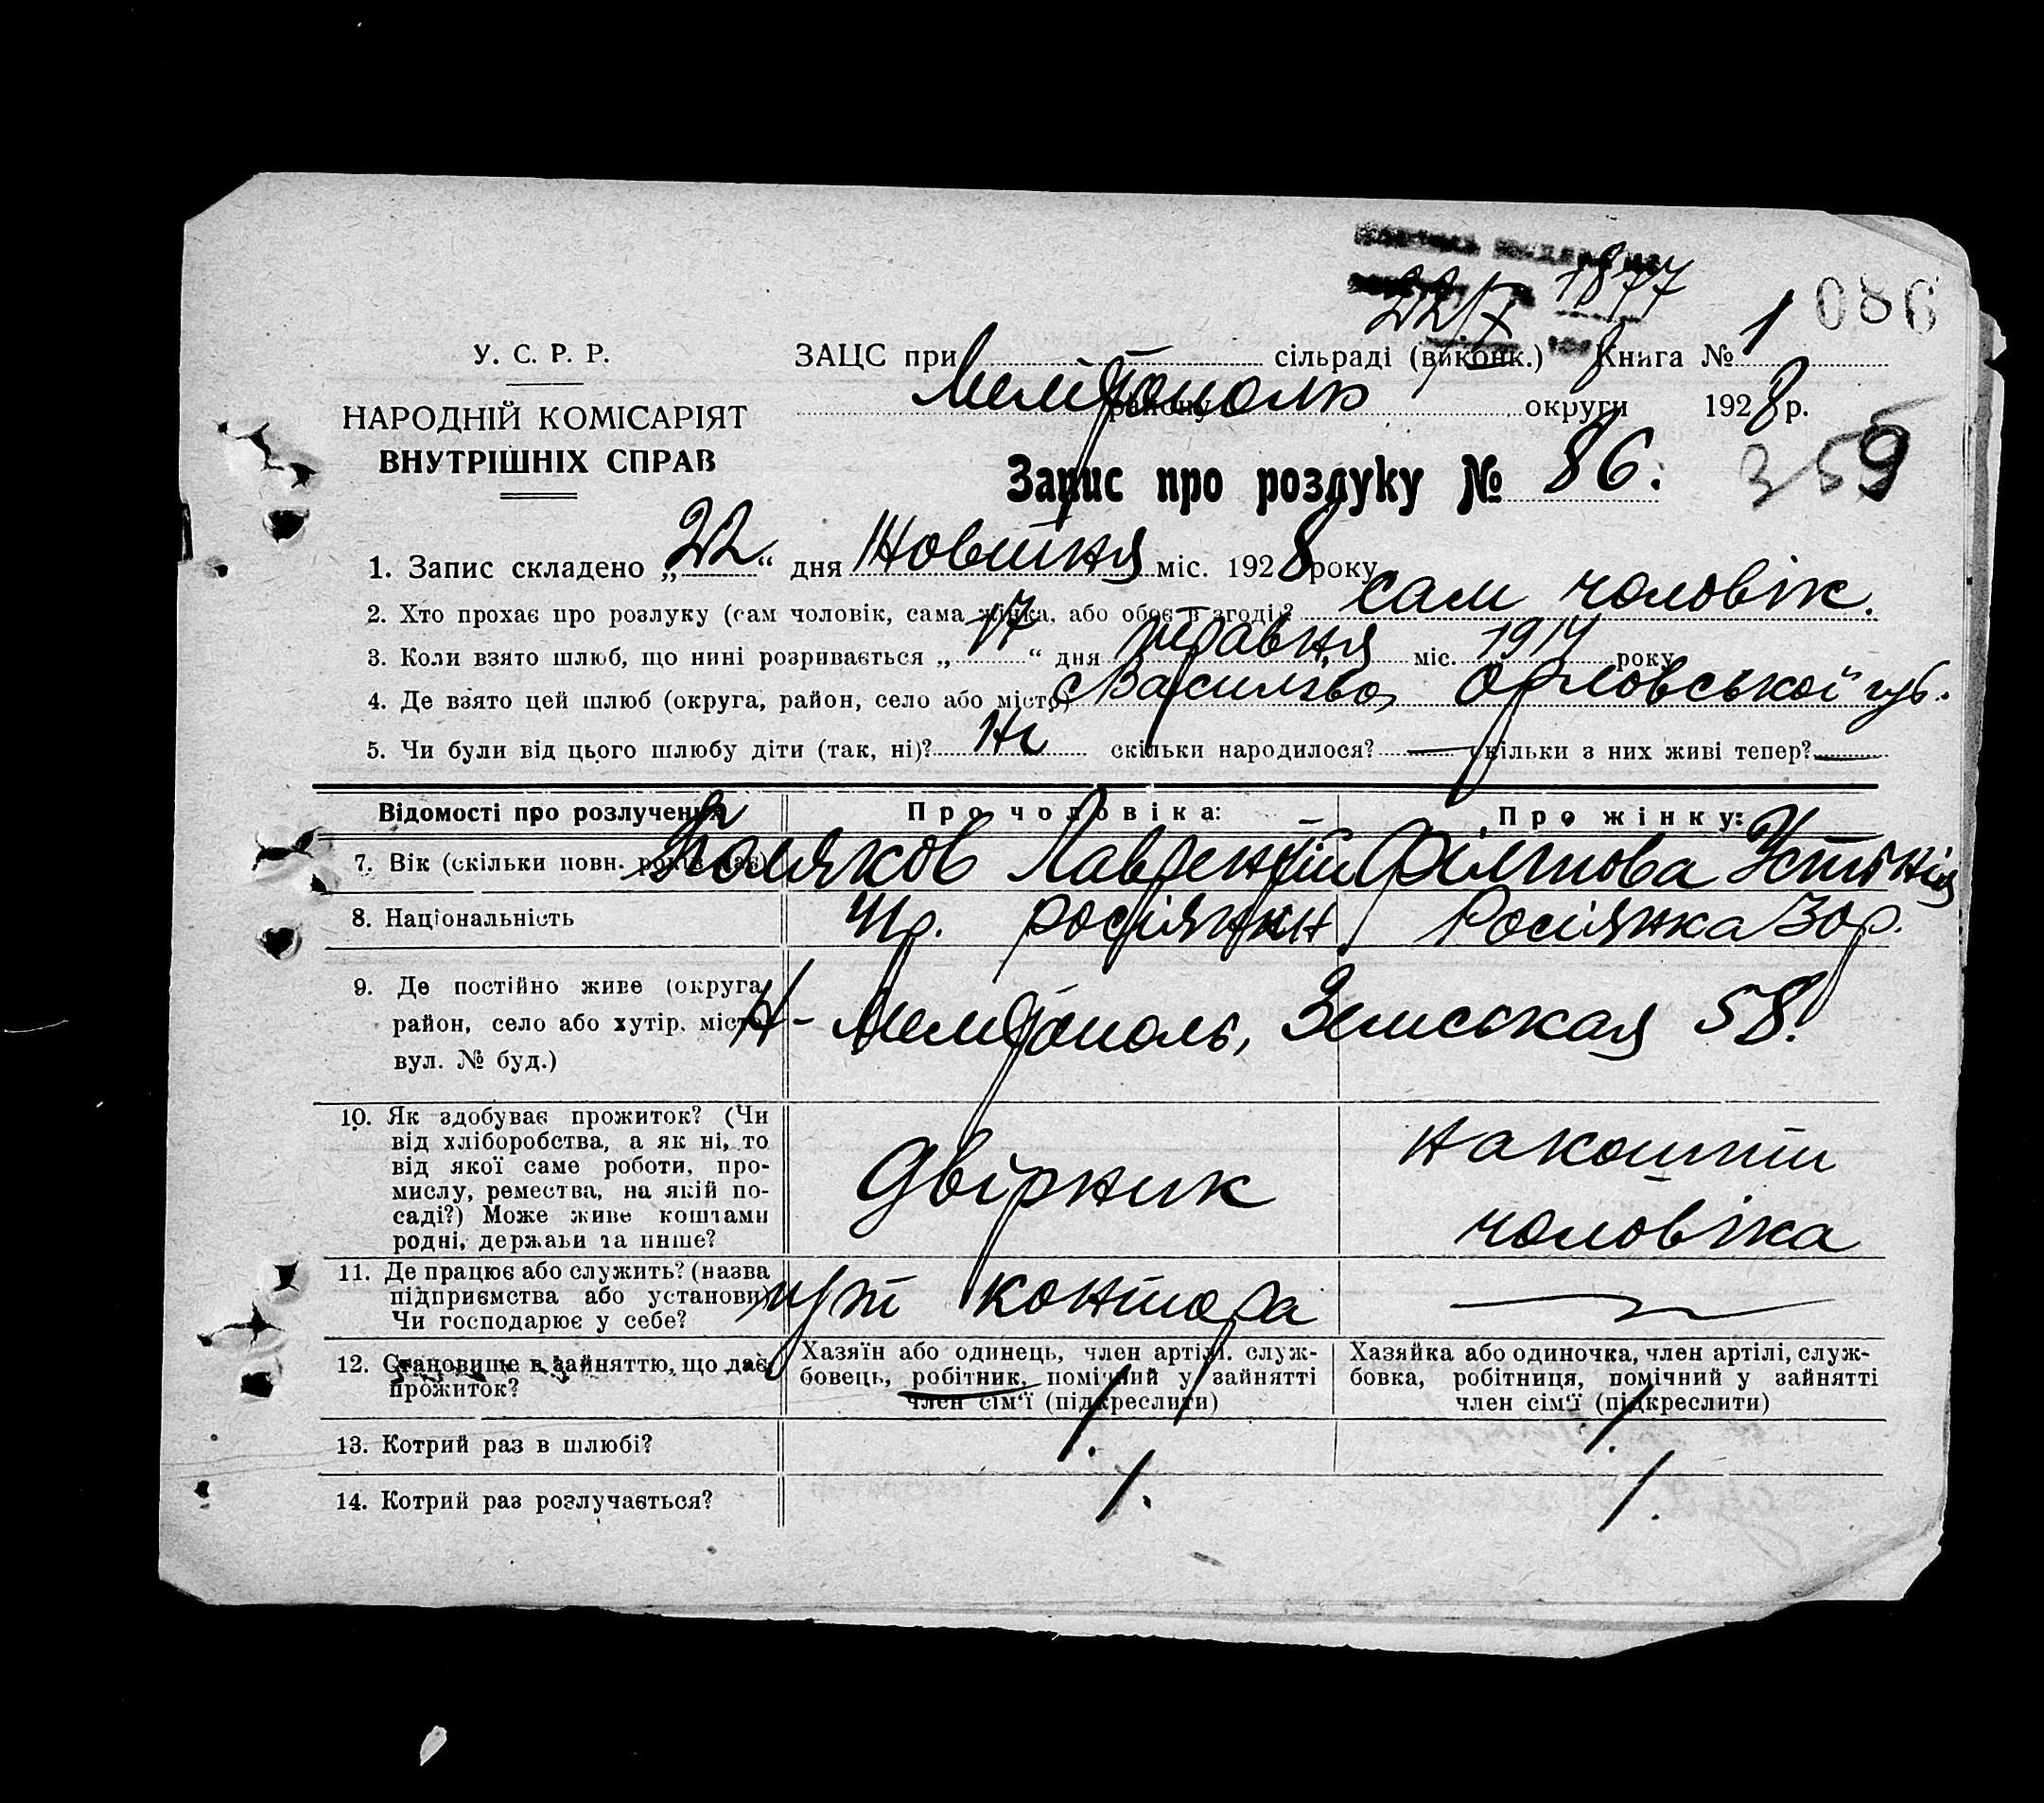 22/X 1877
086
У. С. Р. Р.
ЗАЦС при сільраді (виконк.) Книга № 1
НАРОДНІЙ КОМІСАРІЯТ
ВНУТРІШНІХ СПРАВ
Мелітополь району округи 1928 р.
Запис про розлуку № 86.
359
1. Запис складено „22“ дня Жовтня міс. 1928 року
2. Хто прохає про розлуку (сам чоловік, сама жінка, або обоє в згоді)? сам чоловік.
3. Коли взято шлюб, що нині розривається „17“ дня травня міс. 1914 року
4. Де взято цей шлюб (округа, район, село або місто) Орловської губ.
5. Чи були від цього шлюбу діти (так, ні)? Ні скільки народилося? — скільки з них живі тепер? —
Відомості про розлучених Про чоловіка: Про жінку:
7. Вік (скільки повн. років має) Поляков Лаврентій Устинія
8. Національність росіянин Росіянка 30 р.
9. Де постійно живе (округа,
район, село або хутір, місто,
вул. № буд.)
Мелітополь, Земськая 58.
10. Як здобуває прожиток? (Чи
від хліборобства, а як ні, то
від якої саме роботи, про-
мислу, ремества, на якій по-
саді?) Може живе коштами
родні, держави та инше?
Двірник
на кошти
чоловіка
11. Де працює або служить? (назва
підприємства або установи)
Чи господарює у себе?
контора
12. Становище в зайняттю, що дає
прожиток?
Хазяїн або одинець, член артілі, служ-
бовець, робітник, помічний у зайнятті
член сім'ї (підкреслити)
Хазяйка або одиночка, член артілі, служ-
бовка, робітниця, помічний у зайнятті
член сім'ї (підкреслити)
13. Котрий раз в шлюбі? 1. 1.
14. Котрий раз розлучається? 1. 1.